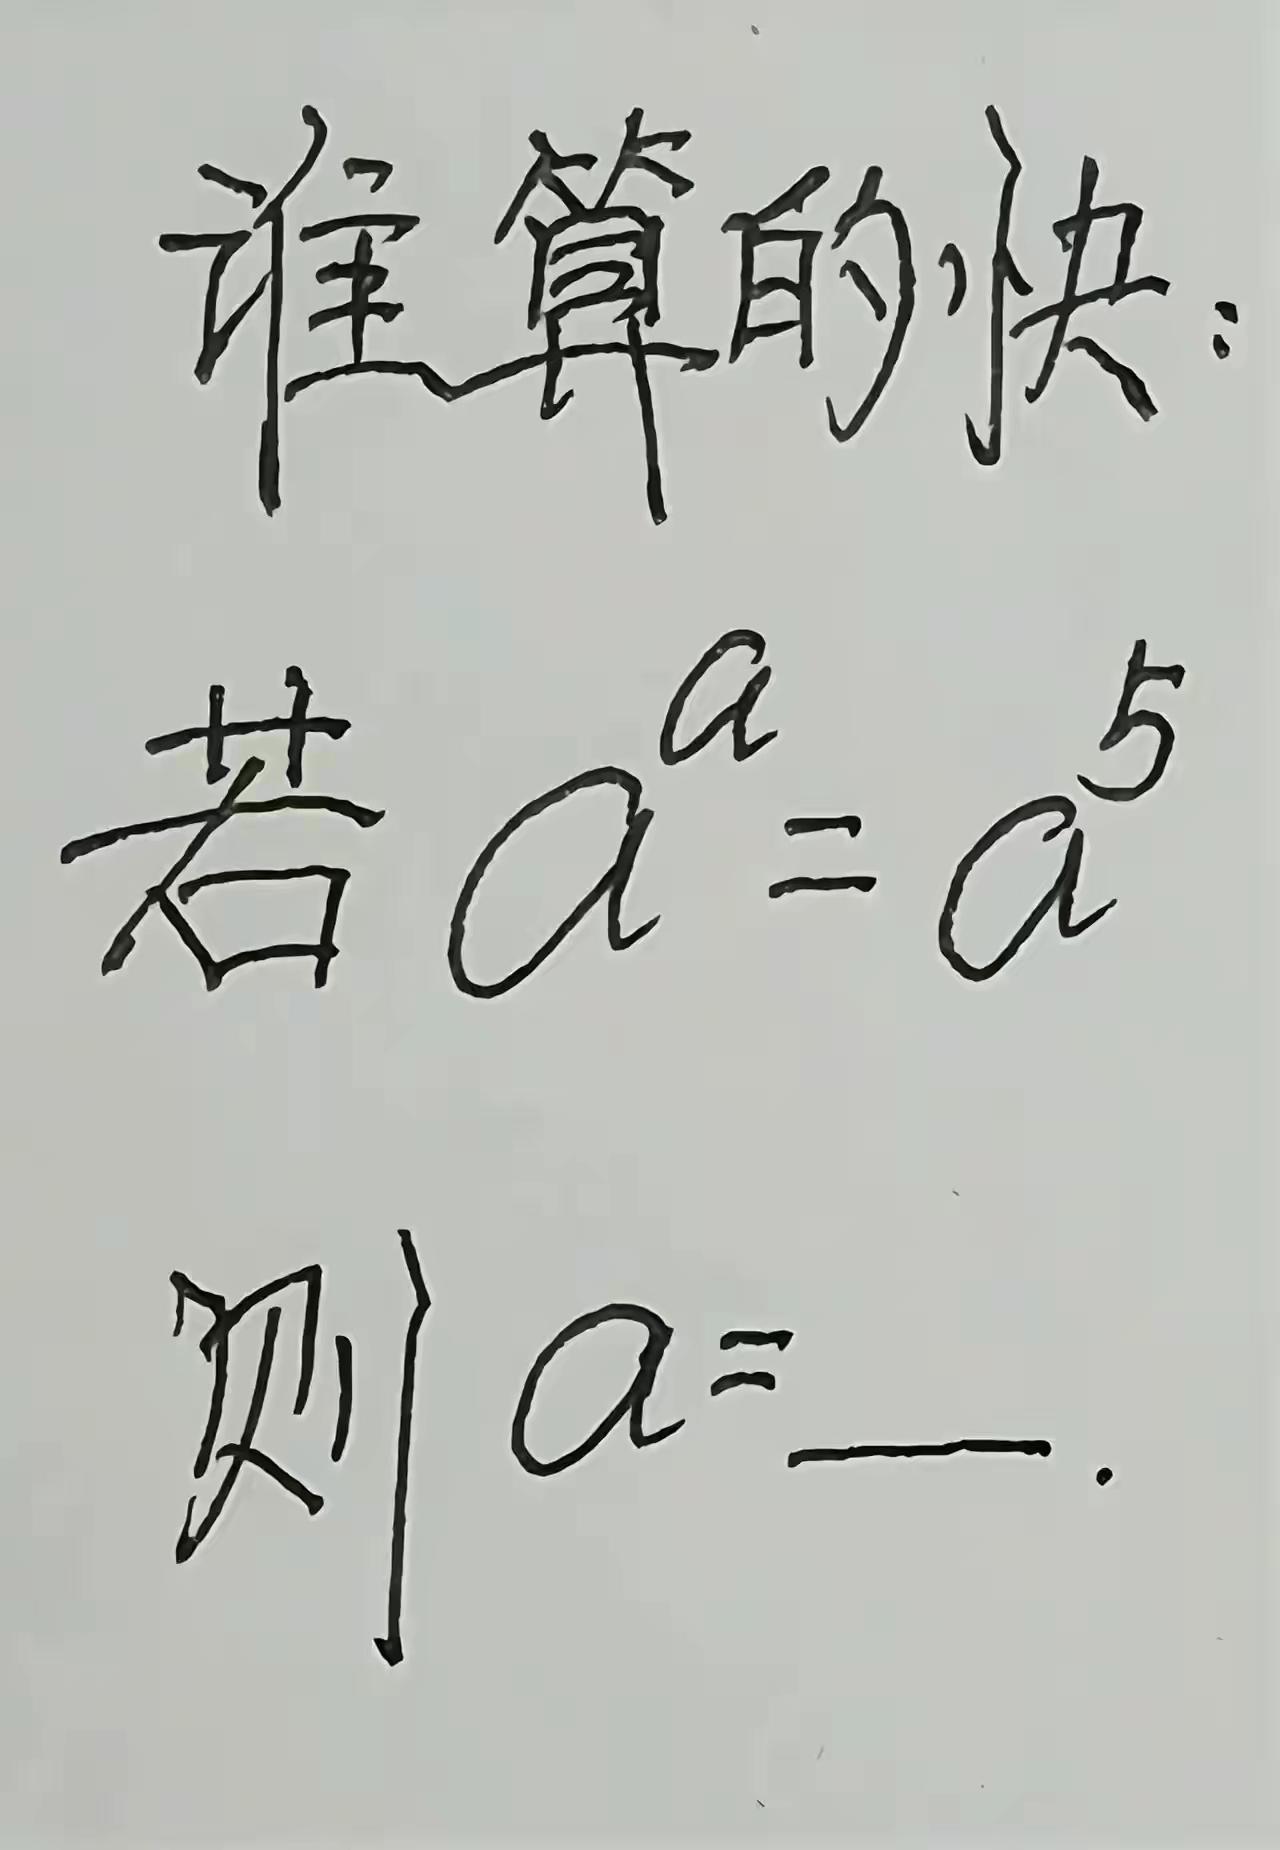 谁算的快:
若 a^a = a^5
则 a = ___.